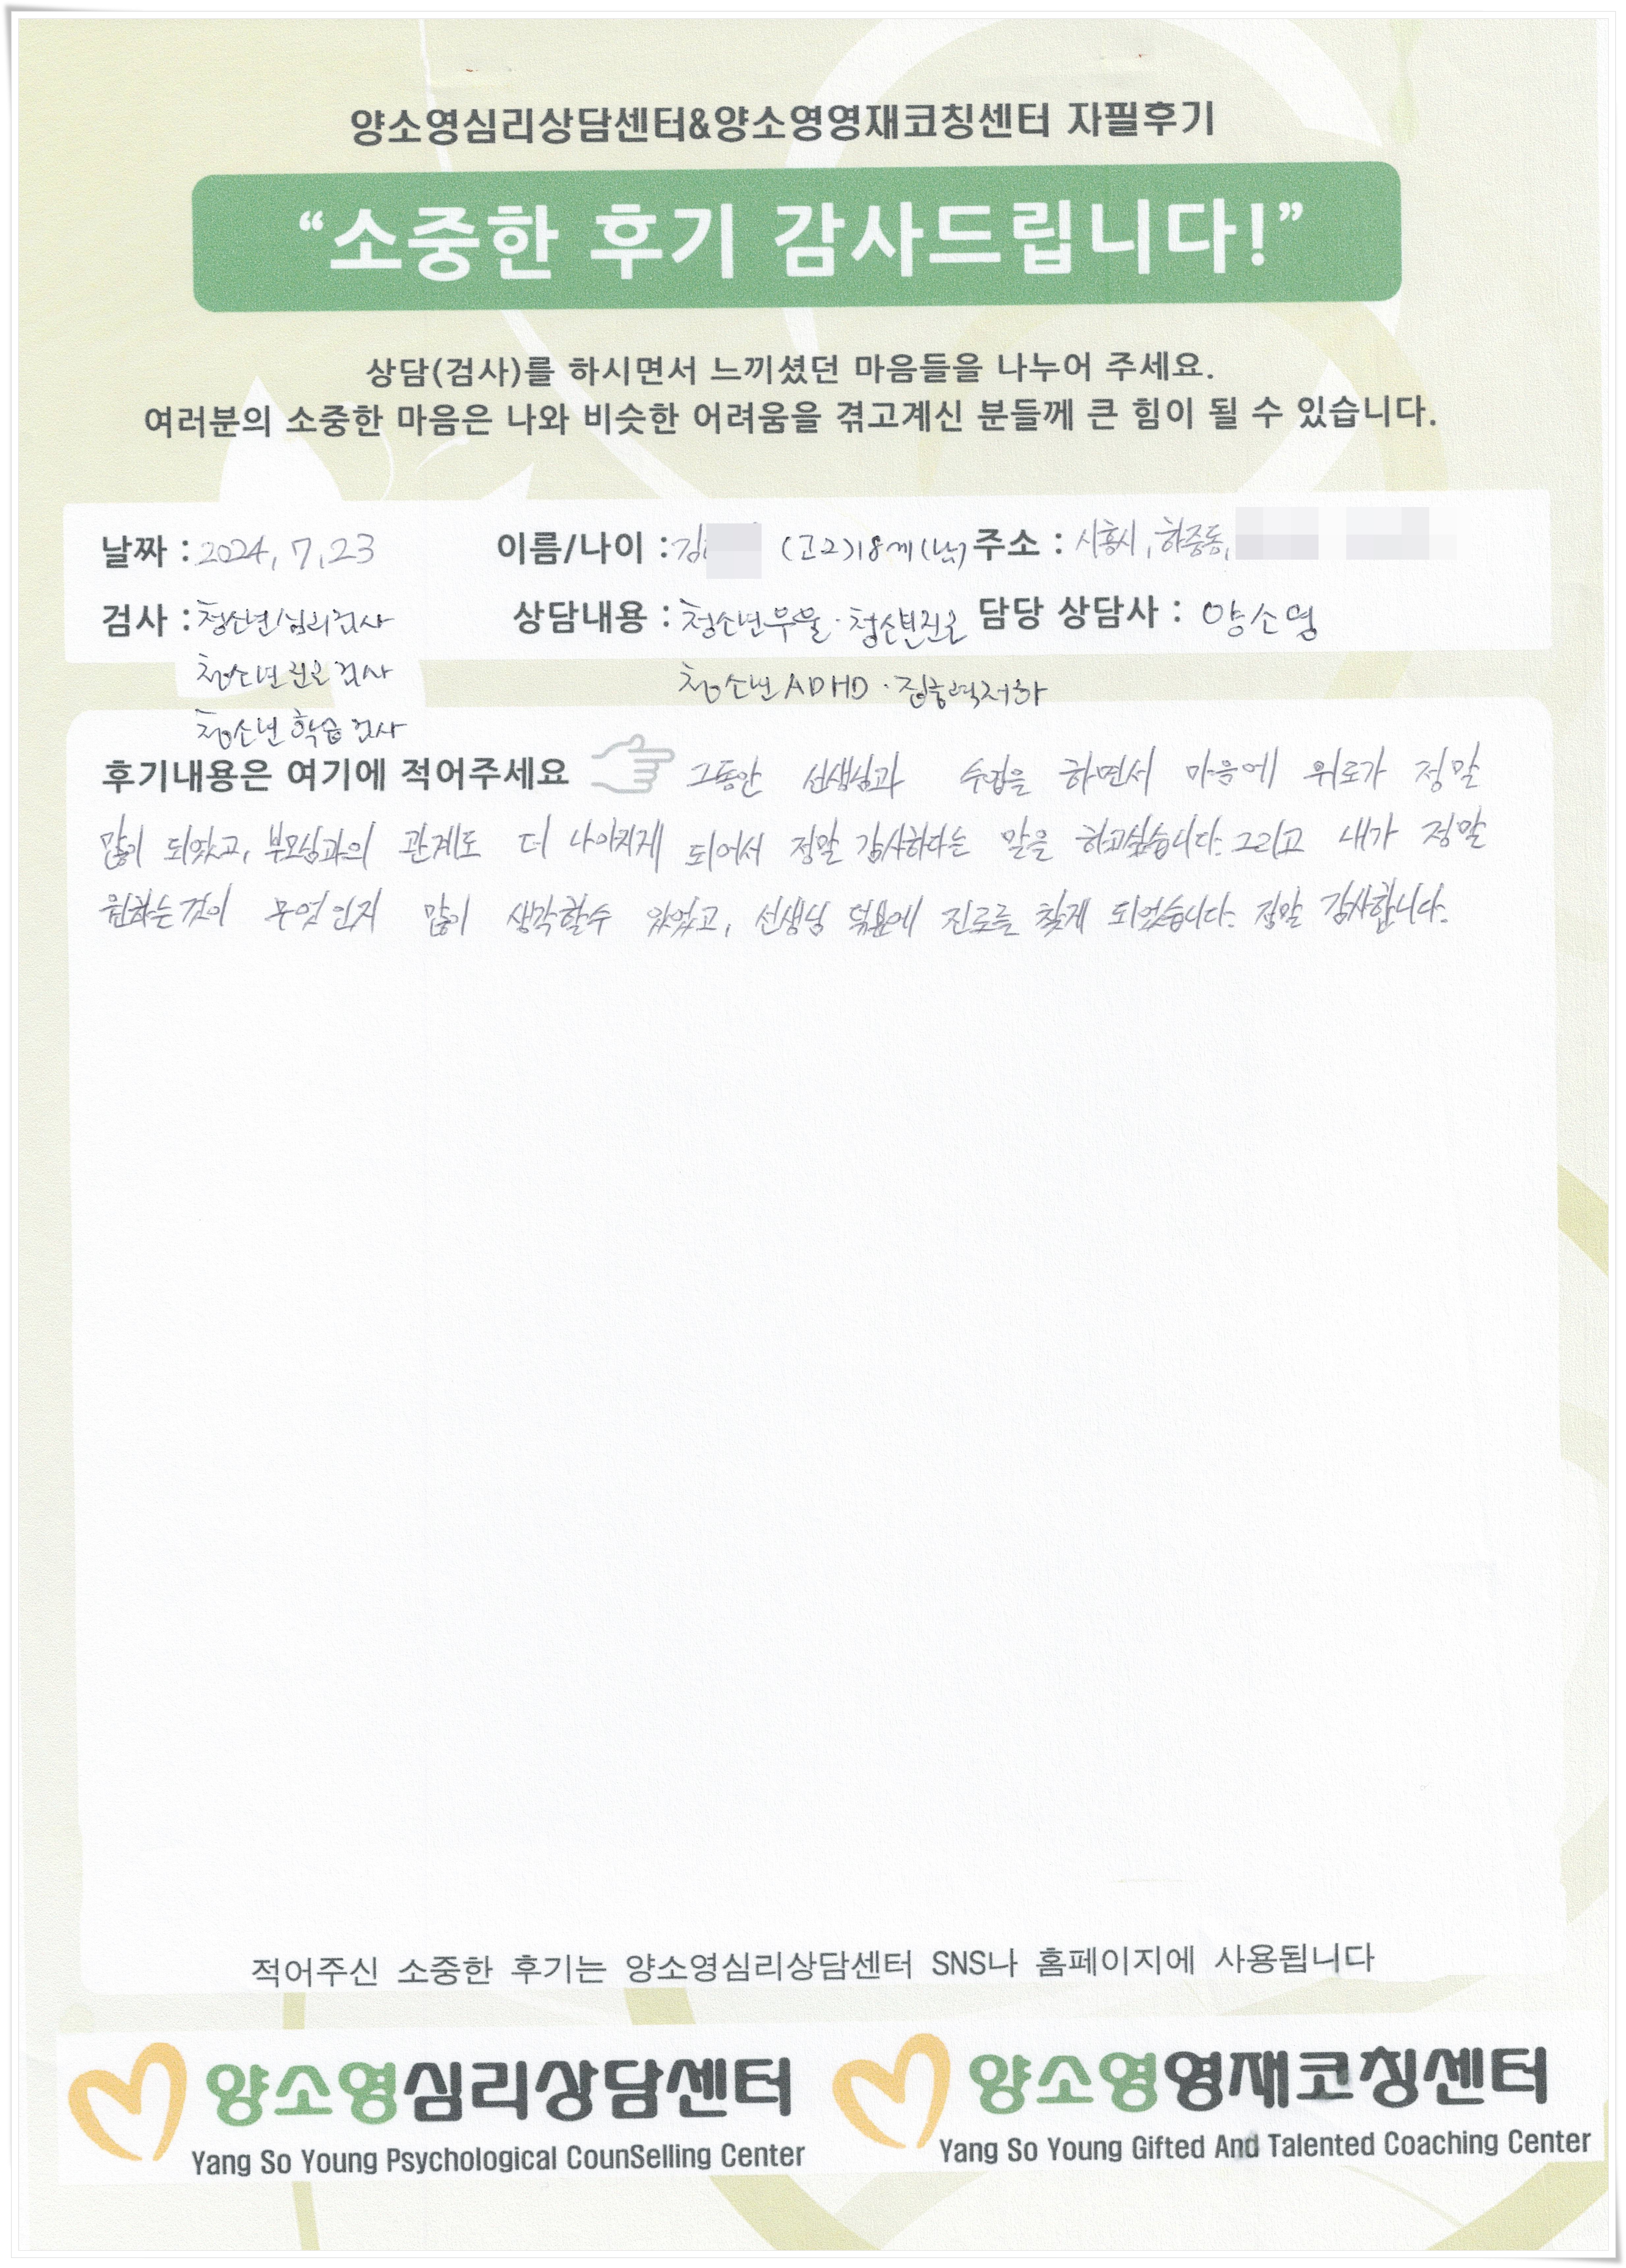 양소영심리상담센터&양소영영재코칭센터 자필후기
“소중한 후기 감사드립니다!”
상담(검사)를 하시면서 느끼셨던 마음들을 나누어 주세요.
여러분의 소중한 마음은 나와 비슷한 어려움을 겪고계신 분들께 큰 힘이 될 수 있습니다.
날짜 : 2024, 7, 23 이름/나이 : 김 (고2) 18세 (남) 주소 : 시흥시, 하중동,
검사 : 청소년/심리검사 상담내용 : 청소년우울 · 청소년진로 담당 상담사 : 양소영
청소년 진로 검사 청소년 ADHD · 집중력저하
청소년 학습 검사
후기내용은 여기에 적어주세요 그동안 선생님과 수업을 하면서 마음에 위로가 정말
많이 되었고, 부모님과의 관계도 더 나아지게 되어서 정말 감사하다는 말을 하고싶습니다. 그리고 내가 정말
원하는것이 무엇인지 많이 생각할수 있었고, 선생님 덕분에 진로를 찾게 되었습니다. 정말 감사합니다.
적어주신 소중한 후기는 양소영심리상담센터 SNS나 홈페이지에 사용됩니다
양소영심리상담센터 양소영영재코칭센터
Yang So Young Psychological CounSelling Center Yang So Young Gifted And Talented Coaching Center